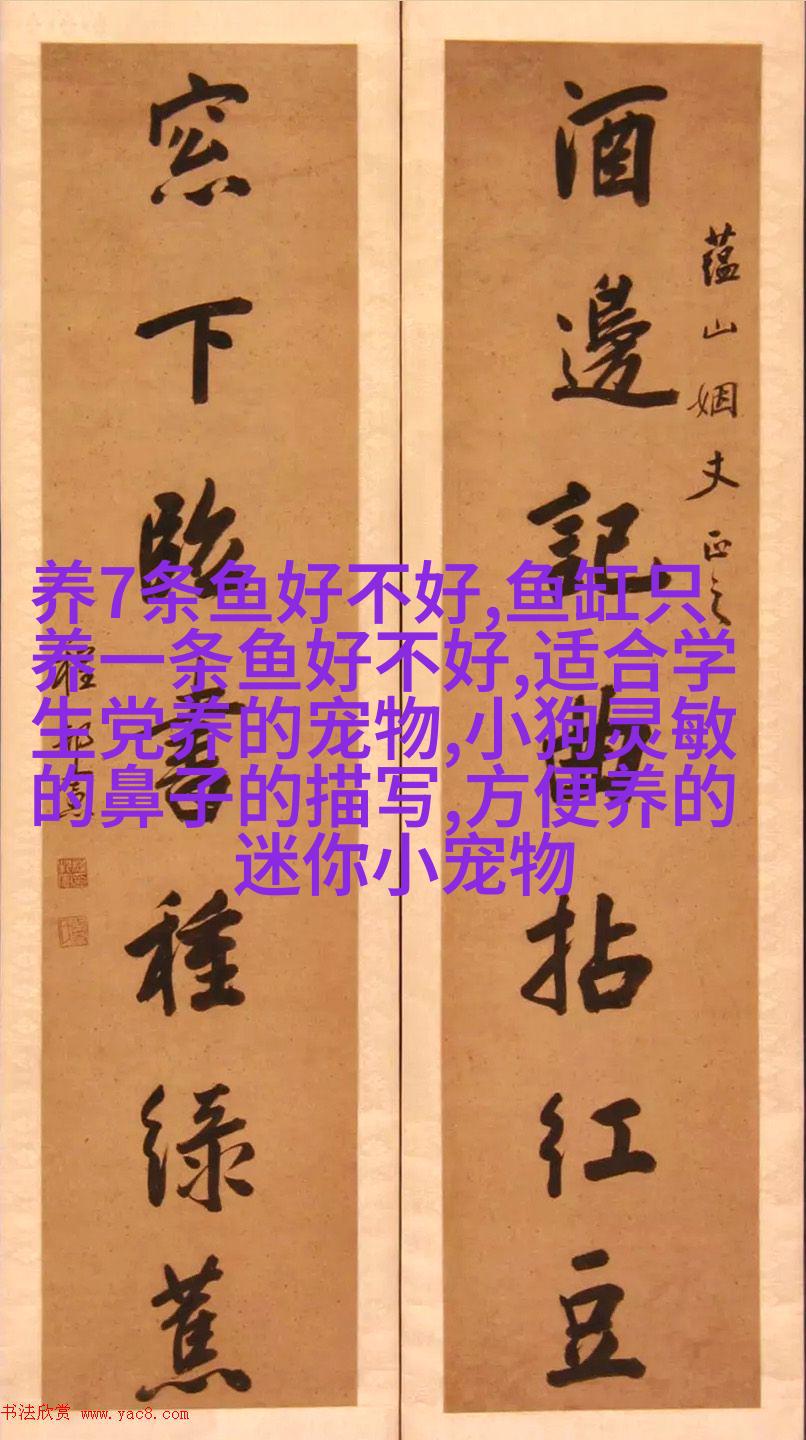 蘊山姻丈正之
酒邊記曲拈紅豆
窓下臨書種綠蕉
程邦憲
养7条鱼好不好,鱼缸只
养一条鱼好不好,适合学
生党养的宠物,小狗灵敏
的鼻子的描写,方便养的
迷你小宠物
书法欣赏 www.yac8.com